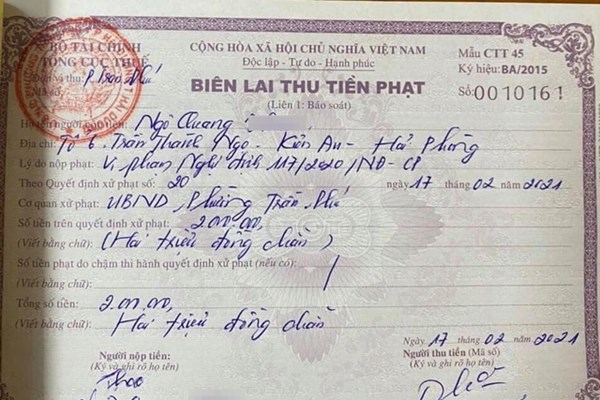 BỘ TÀI CHÍNH
TỔNG CỤC THUẾ
Đơn vị thu: P Trần Phú
Mã số:
CỘNG HÒA XÃ HỘI CHỦ NGHĨA VIỆT NAM
Độc lập - Tự do - Hạnh phúc
Mẫu CTT 45
Ký hiệu: BA/2015
BIÊN LAI THU TIỀN PHẠT
(Liên 1: Báo soát)
Số: 0010161
Họ tên người nộp tiền: Ngô Quang
Địa chỉ: Tổ 6. Trần Thành Ngọ - Kiến An - Hải Phòng
Lý do nộp phạt: Vi phạm Nghị định 117/2020/NĐ-CP
Theo Quyết định xử phạt số: 20 ngày 17 tháng 02 năm 2021
Cơ quan xử phạt: UBND Phường Trần Phú
Số tiền trên quyết định xử phạt: 2000.000,
(Viết bằng chữ): (Hai triệu đồng chẵn)
Số tiền phạt do chậm thi hành quyết định xử phạt (nếu có): /
(Viết bằng chữ):
Tổng số tiền: 2.000.000,
(Viết bằng chữ): Hai triệu đồng chẵn
Ngày 17 tháng 02 năm 2021
Người nộp tiền:
(Ký và ghi rõ họ tên)
Người thu tiền (Mã số)
(Ký và ghi rõ họ tên)